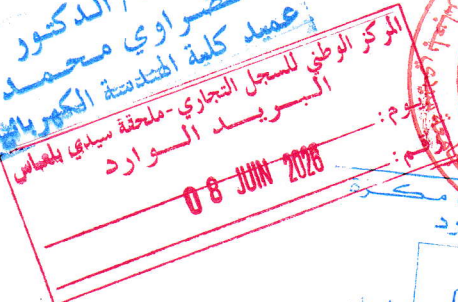 الدكتور
محمد
عميد كلية الهندسة الكهربائية
المركز الوطني للسجل التجاري - ملحقة سيدي بلعباس
البريد الوارد
يوم :
رقم :
08 JUIN 2026